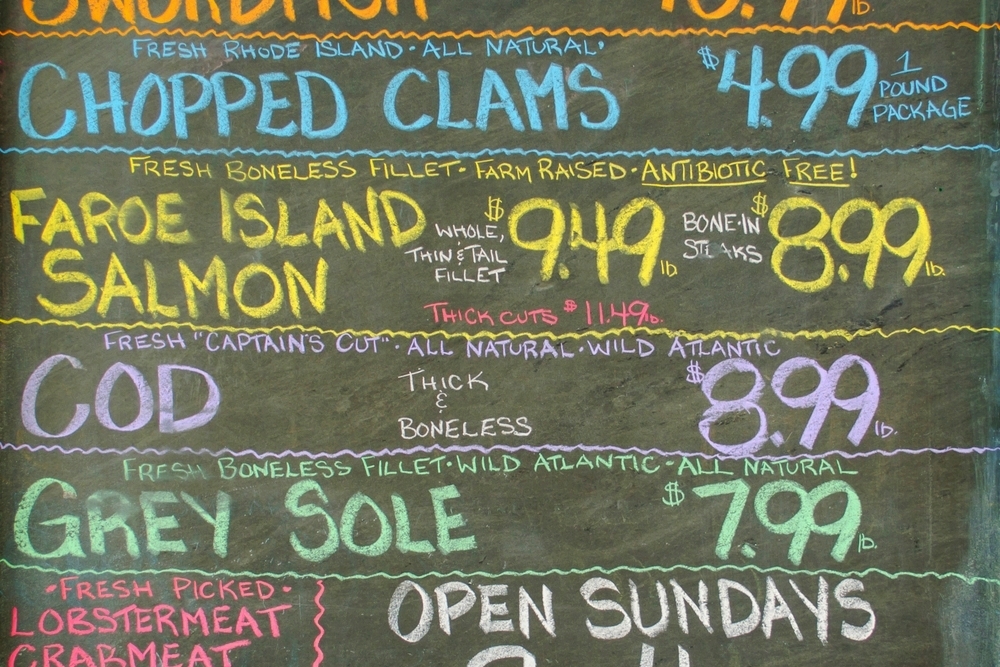 SWORDFISH
lb.
FRESH RHODE ISLAND · ALL NATURAL ·
CHOPPED CLAMS $4.99 1 POUND PACKAGE
FRESH BONELESS FILLET · FARM RAISED · ANTIBIOTIC FREE!
FAROE ISLAND SALMON
WHOLE, THIN & TAIL FILLET $9.49 lb.
BONE-IN STEAKS $8.99 lb.
THICK CUTS $11.49 lb.
FRESH "CAPTAIN'S CUT" · ALL NATURAL · WILD ATLANTIC
COD THICK & BONELESS $8.99 lb.
FRESH BONELESS FILLET · WILD ATLANTIC · ALL NATURAL
GREY SOLE $7.99 lb.
· FRESH PICKED ·
LOBSTERMEAT
CRABMEAT
OPEN SUNDAYS